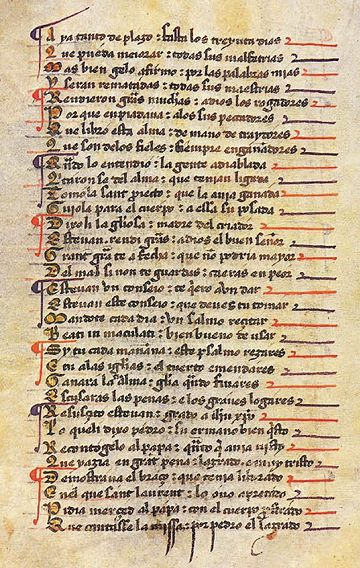 Aya tanto de plazo : fasta los treynta dias
Que pueda meiorar : todas sus malfetrias
Mas bien gelo afirmo : por las palabras mias
Y seran rematadas : todas sus maestrias
Rendieron grãs muchas : a dios los rogadores
Por que enpiadaua : a los sus peccadores
Que libro esta alma : de mano de traytores
Que son delos fieles : siempre engañadores
Quãdo lo entendio : la gente adiablada
Quitaron se tel alma : que tenian ligada
Tomola sant proiecto : que la auia ganada
Guiola para el cuerpo : a essa su posada
Dixol la gliosa : madre del criador
Esteuan rendi grãs : a dios el buen señor
Grant grã te a fecha : que nõ podria mayor
Del mal si non te guardas : caeras en peor
Esteuan vn conseio : te qero aun dar
Esteuan este conseio : que deues tu tomar
Mandote cada dia : vn salmo rezitar
Beati in maculati : bien bueno de usar
Sy tu cada mañana : este psalmo rezares
E tu alas iglias : el tuerto emendares
Ganara tu alma : glia qñdo finares
Escusaras las penas : e los graues logares
Resuscito esteuan : grado a ihũ xpõ
Lo quel dixo pedro : su ermano bien qsto
Recontogelo al papa : qñto q auia uisto
Que yazia en grãt pena : lazrado e muy tristo
Demostraua el braço : que tenia liurado
E nel que sant laurent : lo ouo apretado
Pidia merced al papa : con el cuerpo prostrado
Que cantasse la missa : por pedro el lazrado